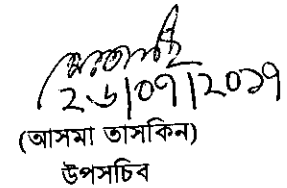 ২৬|০৭|২০১৭
(আসমা তাসকিন)
উপসচিব